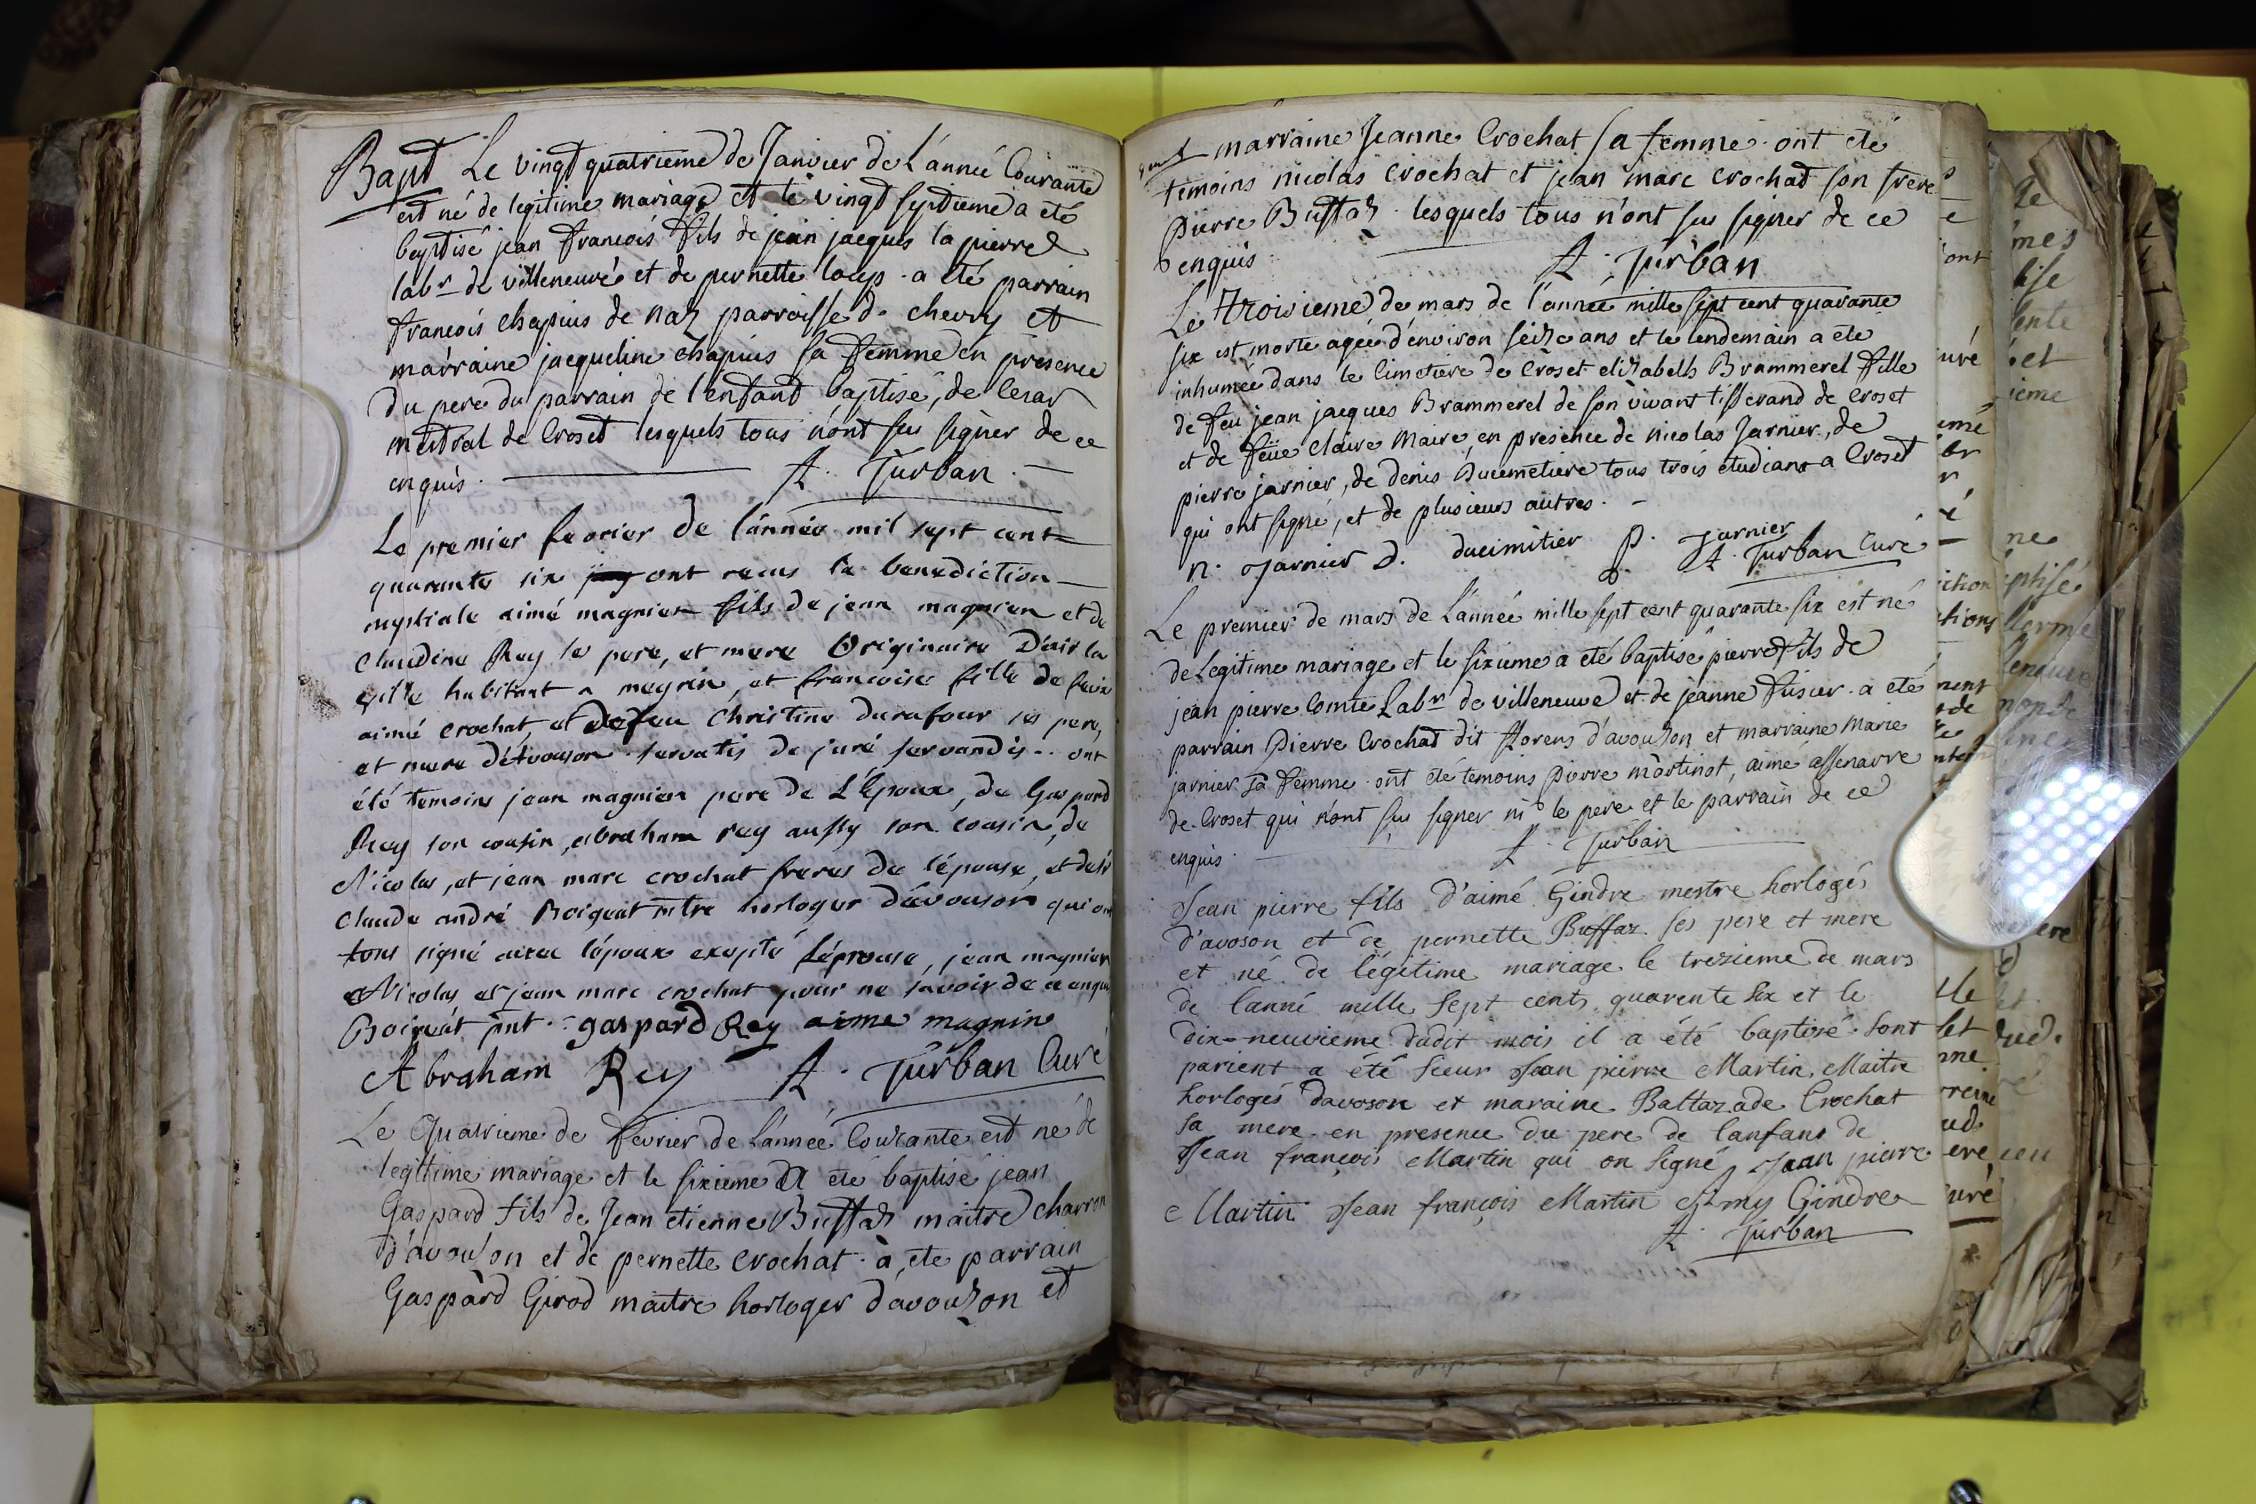 Bapt Le vingt quatrieme de Janvier de L'année Courante
est né de legitime mariage et le vingt septieme a eté
baptisé jean francois fils de jean jacques la pierre
labr de villeneuve et de pernette loup. a eté parrain
francois chapuis de naz parroisse de chevry et
marraine jacqueline chapuis sa femme en presence
du pere du parrain de l'enfant baptisé, de Cesar
mestral de Croset lesquels tous n'ont seu signer de ce
enquis. A. Turban.
Le premier fevrier de l'année mil sept cent
quarante six ont receus la benediction
nuptiale aimé magnien fils de jean magnien et de
Claudine Rey le pere, et mere Originaire D'air la
ville habitant a meyrin, et francoise fille de feu
aimé crochat, et de feu Christine durafour ses pere,
et mere d'Avouson servatis de juré servandis.. ont
été temoins jean magnien pere de L'Epoux, de Gaspard
Rey son cousin, abraham rey aussy son cousin, de
Nicolas, et jean marc crochat freres de l'épouse, et de
Claude andré Boiguat mtre horloger d'avouson qui ont
tous signé avec l'époux exepté l'épouse, jean magnien
Nicolas et jean marc crochat pour ne savoir de ce enquis
gaspard Rey aime magnin
Abraham Rey A. Turban Curé
Le Quatrieme de fevrier de l'année Courante est né de
legitime mariage et le sixieme a eté baptisé jean
Gaspard fils de Jean etienne Buffaz maitre charron
d'avouson et de pernette Crochat. à ete parrain
Gaspard Girod maitre horloger d'avouzon et
marraine Jeanne Crochat sa femme. ont eté
temoins nicolas crochat et jean marc crochat son frere
pierre Buffaz. lesquels tous n'ont seu signer de ce
enquis A. Turban
Le troisieme de mars de l'année mille sept cent quarante
six est morte agée d'environ seize ans et le lendemain a ete
inhumée dans le Cimetiere de Croset elizabeth Brammerel fille
de feu jean jacques Brammerel de son vivant tisserand de Croset
et de feüe Claire Maire, en presence de nicolas Jarnier, de
pierre jarnier, de denis Ducimetiere tous trois etudians a Croset
qui ont signé, et de plusieurs autres.
n. Jarnier D. ducimitier P. Jarnier
A. Turban Curé
Le premier de mars de L'année mille sept cent quarante six est né
de legitime mariage et le sixieme a eté baptisé pierre fils de
jean pierre Comte Labr de villeneuve et de jeanne fusier. a eté
parrain Pierre Crochat dit florens d'avouzon et marraine Marie
jarnier sa femme ont eté temoins pierre martinot, aimé assenarre
de Croset qui n'ont seu signer ni le pere et le parrain de ce
enquis. A. Turban
Jean pierre fils d'aimé Gindre mestre horloges
d'avoson et de pernette Buffaz ses pere et mere
et né de légitime mariage le trezieme de mars
de lanné mille sept cents quarente six et le
dix-neuvieme dudit mois il a été baptisé. sont
parient a été sieur Jean pierre Martin, Maitre
horloges d'avoson et maraine Baltazade Crochat
sa mere en presence du pere de lanfans de
Jean françois Martin qui on signé, Jean pierre
Martin Jean françois Martin Amy Gindre
A. Turban